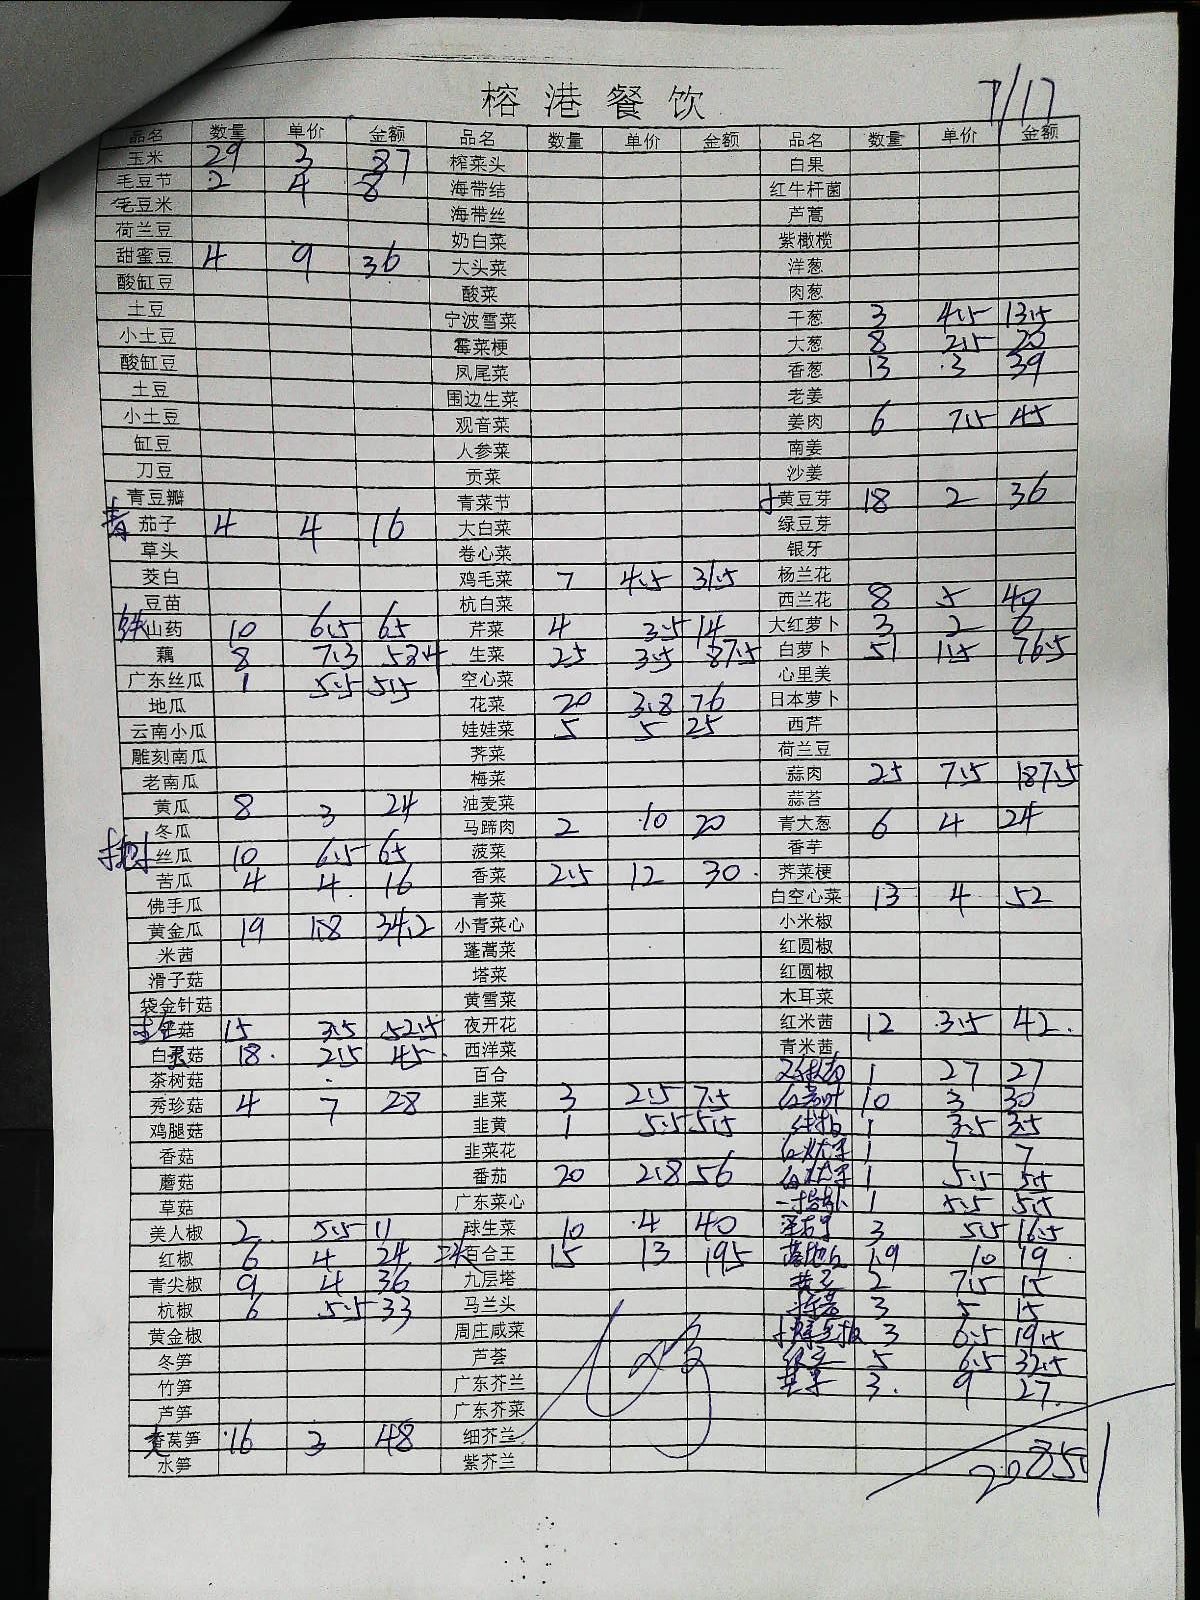 榕港餐饮
7/17
品名 数量 单价 金额 品名 数量 单价 金额 品名 数量 单价 金额
玉米 29 3 87 榨菜头 白果
毛豆节 2 4 8 海带结 红牛杆菌
毛豆米 海带丝 芦蒿
荷兰豆 奶白菜 紫橄榄
甜蜜豆 4 9 36 大头菜 洋葱
酸缸豆 酸菜 肉葱
土豆 宁波雪菜 干葱 3 4.5 13.5
小土豆 霉菜梗 大葱 8 2.5 20
酸缸豆 凤尾菜 香葱 13 3 39
土豆 围边生菜 老姜
小土豆 观音菜 姜肉 6 7.5 45
缸豆 人参菜 南姜
刀豆 贡菜 沙姜
青豆瓣 青菜节 黄豆芽 18 2 36
青茄子 4 4 16 大白菜 绿豆芽
草头 卷心菜 银牙
茭白 鸡毛菜 7 4.5 31.5 杨兰花
豆苗 杭白菜 西兰花 8 5 40
铁山药 10 6.5 65 芹菜 4 3.5 14 大红萝卜 3 2 6
藕 8 7.3 58.4 生菜 25 3.5 87.5 白萝卜 51 1.5 76.5
广东丝瓜 1 5.5 5.5 空心菜 心里美
地瓜 花菜 20 3.8 76 日本萝卜
云南小瓜 娃娃菜 5 5 25 西芹
雕刻南瓜 荠菜 荷兰豆
老南瓜 梅菜 蒜肉 25 7.5 187.5
黄瓜 8 3 24 油麦菜 蒜苔
冬瓜 马蹄肉 2 10 20 青大葱 6 4 24
丝瓜 10 6.5 65 菠菜 香芋
苦瓜 4 4 16 香菜 2.5 12 30 荠菜梗
佛手瓜 青菜 白空心菜 13 4 52
黄金瓜 19 1.8 34.2 小青菜心 小米椒
米茜 蓬蒿菜 红圆椒
滑子菇 塔菜 红圆椒
袋金针菇 黄雪菜 木耳菜
菇 15 3.5 52.5 夜开花 红米茜 12 3.5 42
白灵菇 18 2.5 45 西洋菜 青米茜
茶树菇 百合 1 27 27
秀珍菇 4 7 28 韭菜 3 2.5 7.5 10 3 30
鸡腿菇 韭黄 1 5.5 5.5 1 3.5 3.5
香菇 韭菜花 1 7 7
蘑菇 番茄 20 2.8 56 1 5.5 5.5
草菇 广东菜心 1 5.5 5.5
美人椒 2 5.5 11 球生菜 10 4 40 3 5.5 16.5
红椒 6 4 24 百合王 15 13 195 1.9 10 19
青尖椒 9 4 36 九层塔 黄豆 2 7.5 15
杭椒 6 5.5 33 马兰头 3 5 15
黄金椒 周庄咸菜 3 6.5 19.5
冬笋 芦荟 绿豆 5 6.5 32.5
竹笋 广东芥兰 3 9 27
芦笋 广东芥菜
莴笋 16 3 48 细芥兰
水笋 紫芥兰 2085.1